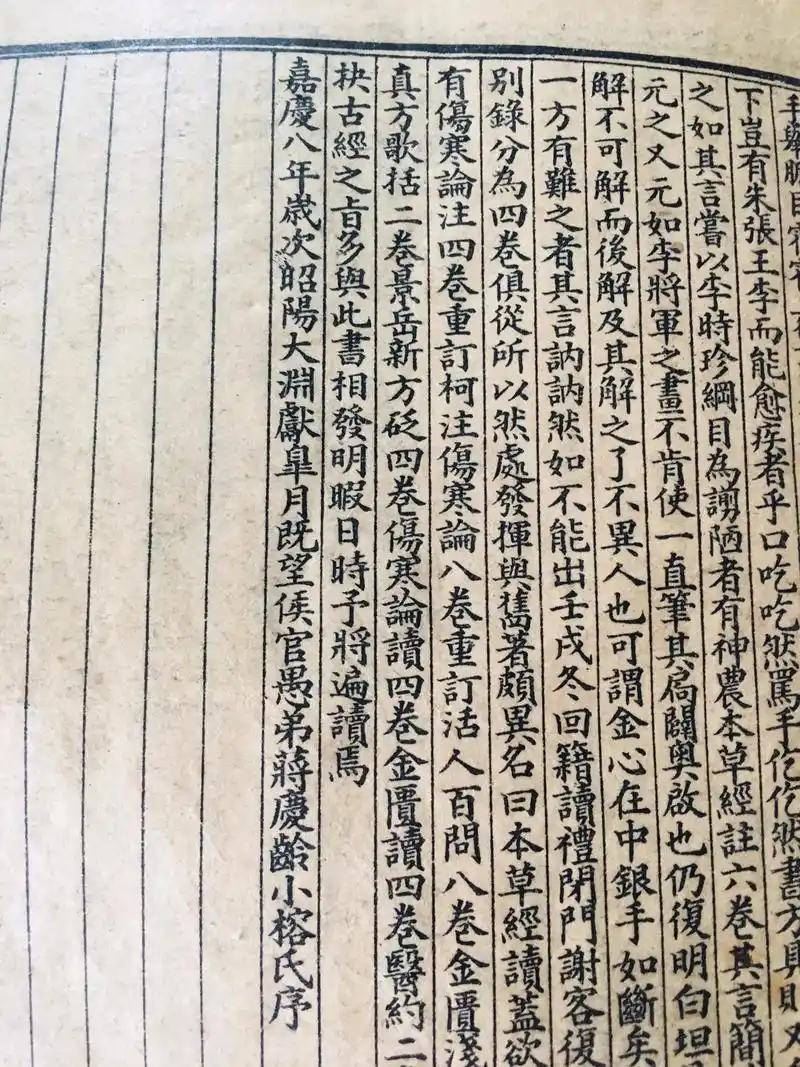 手舉脈目
下豈有朱張王李而能愈疾者乎口吃吃然罵手仡仡然書方具則又
之如其言嘗以李時珍綱目為謭陋者有神農本草經註六卷其言簡
元之又元如李將軍之畫不肯使一直筆其扃關奧啟也仍復明白坦
解不可解而後解及其解之了不異人也可謂金心在中銀手如斷矣
一方有難之者其言訥訥然如不能出壬戌冬回籍讀禮閉門謝客復
別錄分為四卷俱從所以然處發揮與舊著頗異名曰本草經讀蓋欲
有傷寒論注四卷重訂柯注傷寒論八卷重訂活人百問八卷金匱淺
真方歌括二卷景岳新方砭四卷傷寒論讀四卷金匱讀四卷醫約二
抉古經之旨多與此書相發明暇日時予將遍讀焉
嘉慶八年歲次昭陽大淵獻皐月既望侯官愚弟蔣慶齡小榕氏序